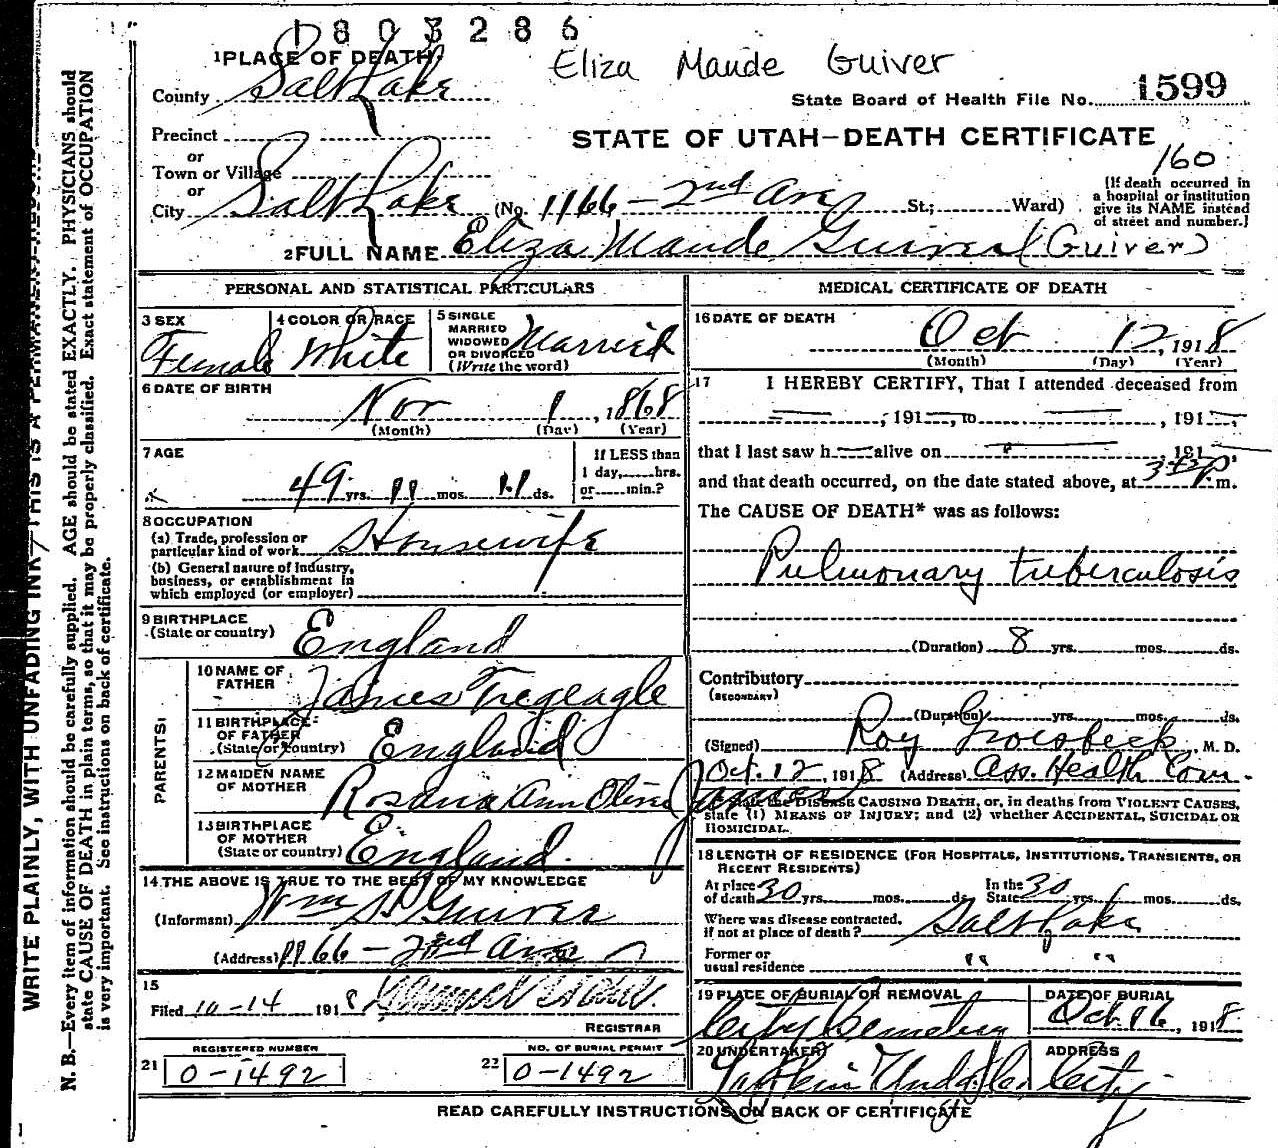 1803286
1 PLACE OF DEATH
Eliza Maude Guiver
County Salt Lake
State Board of Health File No. 1599
Precinct
STATE OF UTAH—DEATH CERTIFICATE
or
160
Town or Village
or
City Salt Lake (No. 1166 - 2nd Ave St.; Ward)
[If death occurred in
a hospital or institution
give its NAME instead
of street and number.]
2 FULL NAME Eliza Maude Guiver (Guiver)
PERSONAL AND STATISTICAL PARTICULARS
3 SEX Female
4 COLOR OR RACE White
5 SINGLE
MARRIED
WIDOWED
OR DIVORCED
(Write the word) Married
6 DATE OF BIRTH
Nov 1, 1868
(Month) (Day) (Year)
7 AGE
49 yrs. 11 mos. 11 ds.
If LESS than
1 day, hrs.
or min.?
8 OCCUPATION
(a) Trade, profession or
particular kind of work Housewife
(b) General nature of industry,
business, or establishment in
which employed (or employer)
9 BIRTHPLACE
(State or country) England
PARENTS
10 NAME OF
FATHER James Tregeagle
11 BIRTHPLACE
OF FATHER
(State or country) England
12 MAIDEN NAME
OF MOTHER Rosana Ann Olive James
13 BIRTHPLACE
OF MOTHER
(State or country) England.
14 THE ABOVE IS TRUE TO THE BEST OF MY KNOWLEDGE
(Informant) Wm H Guiver
(Address) 1166 - 2nd Ave
15
Filed 10-14 1918
REGISTRAR
REGISTERED NUMBER
21 0-1492
NO. OF BURIAL PERMIT
22 0-1492
MEDICAL CERTIFICATE OF DEATH
16 DATE OF DEATH
Oct 12, 1918
(Month) (Day) (Year)
17 I HEREBY CERTIFY, That I attended deceased from
, 191 , to , 191 ,
that I last saw h alive on 191 ,
and that death occurred, on the date stated above, at P m.
The CAUSE OF DEATH* was as follows:
Pulmonary tuberculosis
(Duration) 8 yrs. mos. ds.
Contributory
(SECONDARY)
(Duration) yrs. mos. ds.
(Signed) Roy Groesbeck, M. D.
Oct. 12, 1918 (Address) Ass. Health Com.
*State the DISEASE CAUSING DEATH, or, in deaths from VIOLENT CAUSES,
state (1) MEANS OF INJURY; and (2) whether ACCIDENTAL, SUICIDAL OR
HOMICIDAL.
18 LENGTH OF RESIDENCE (FOR HOSPITALS, INSTITUTIONS, TRANSIENTS, OR
RECENT RESIDENTS)
At place
of death 30 yrs. mos. ds.
In the
State 30 yrs. mos. ds.
Where was disease contracted,
if not at place of death? Salt Lake
Former or
usual residence " "
19 PLACE OF BURIAL OR REMOVAL
City Cemetery
DATE OF BURIAL
Oct 16, 1918
20 UNDERTAKER
ADDRESS
City
READ CAREFULLY INSTRUCTIONS ON BACK OF CERTIFICATE
WRITE PLAINLY, WITH UNFADING INK—THIS IS A PERMANENT RECORD
N. B.—Every item of information should be carefully supplied. AGE should be stated EXACTLY. PHYSICIANS should
state CAUSE OF DEATH in plain terms, so that it may be properly classified. Exact statement of OCCUPATION
is very important. See instructions on back of certificate.